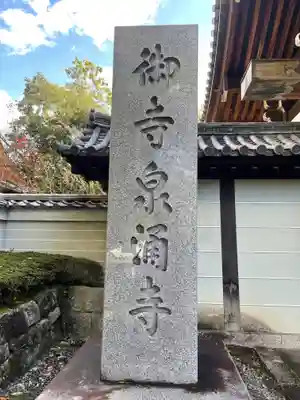 御寺泉涌寺